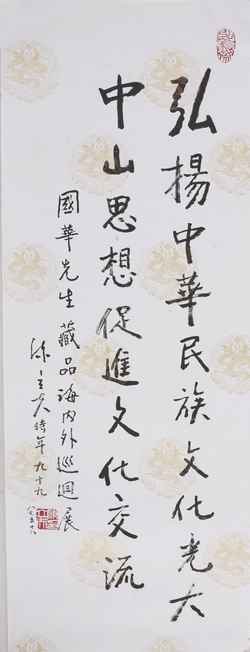 弘揚中華民族文化光大
中山思想促進文化交流
國華先生藏品海內外巡迴展
陳立夫時年九十九